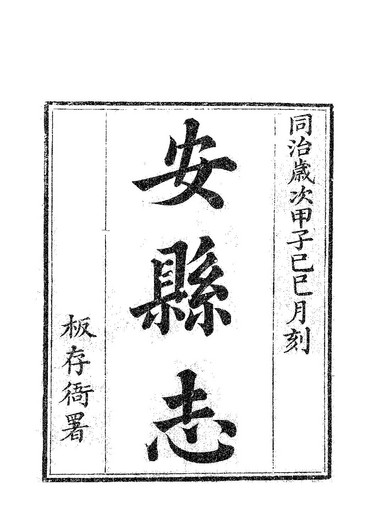 同治歲次甲子己巳月刻
安縣志
板存衙署